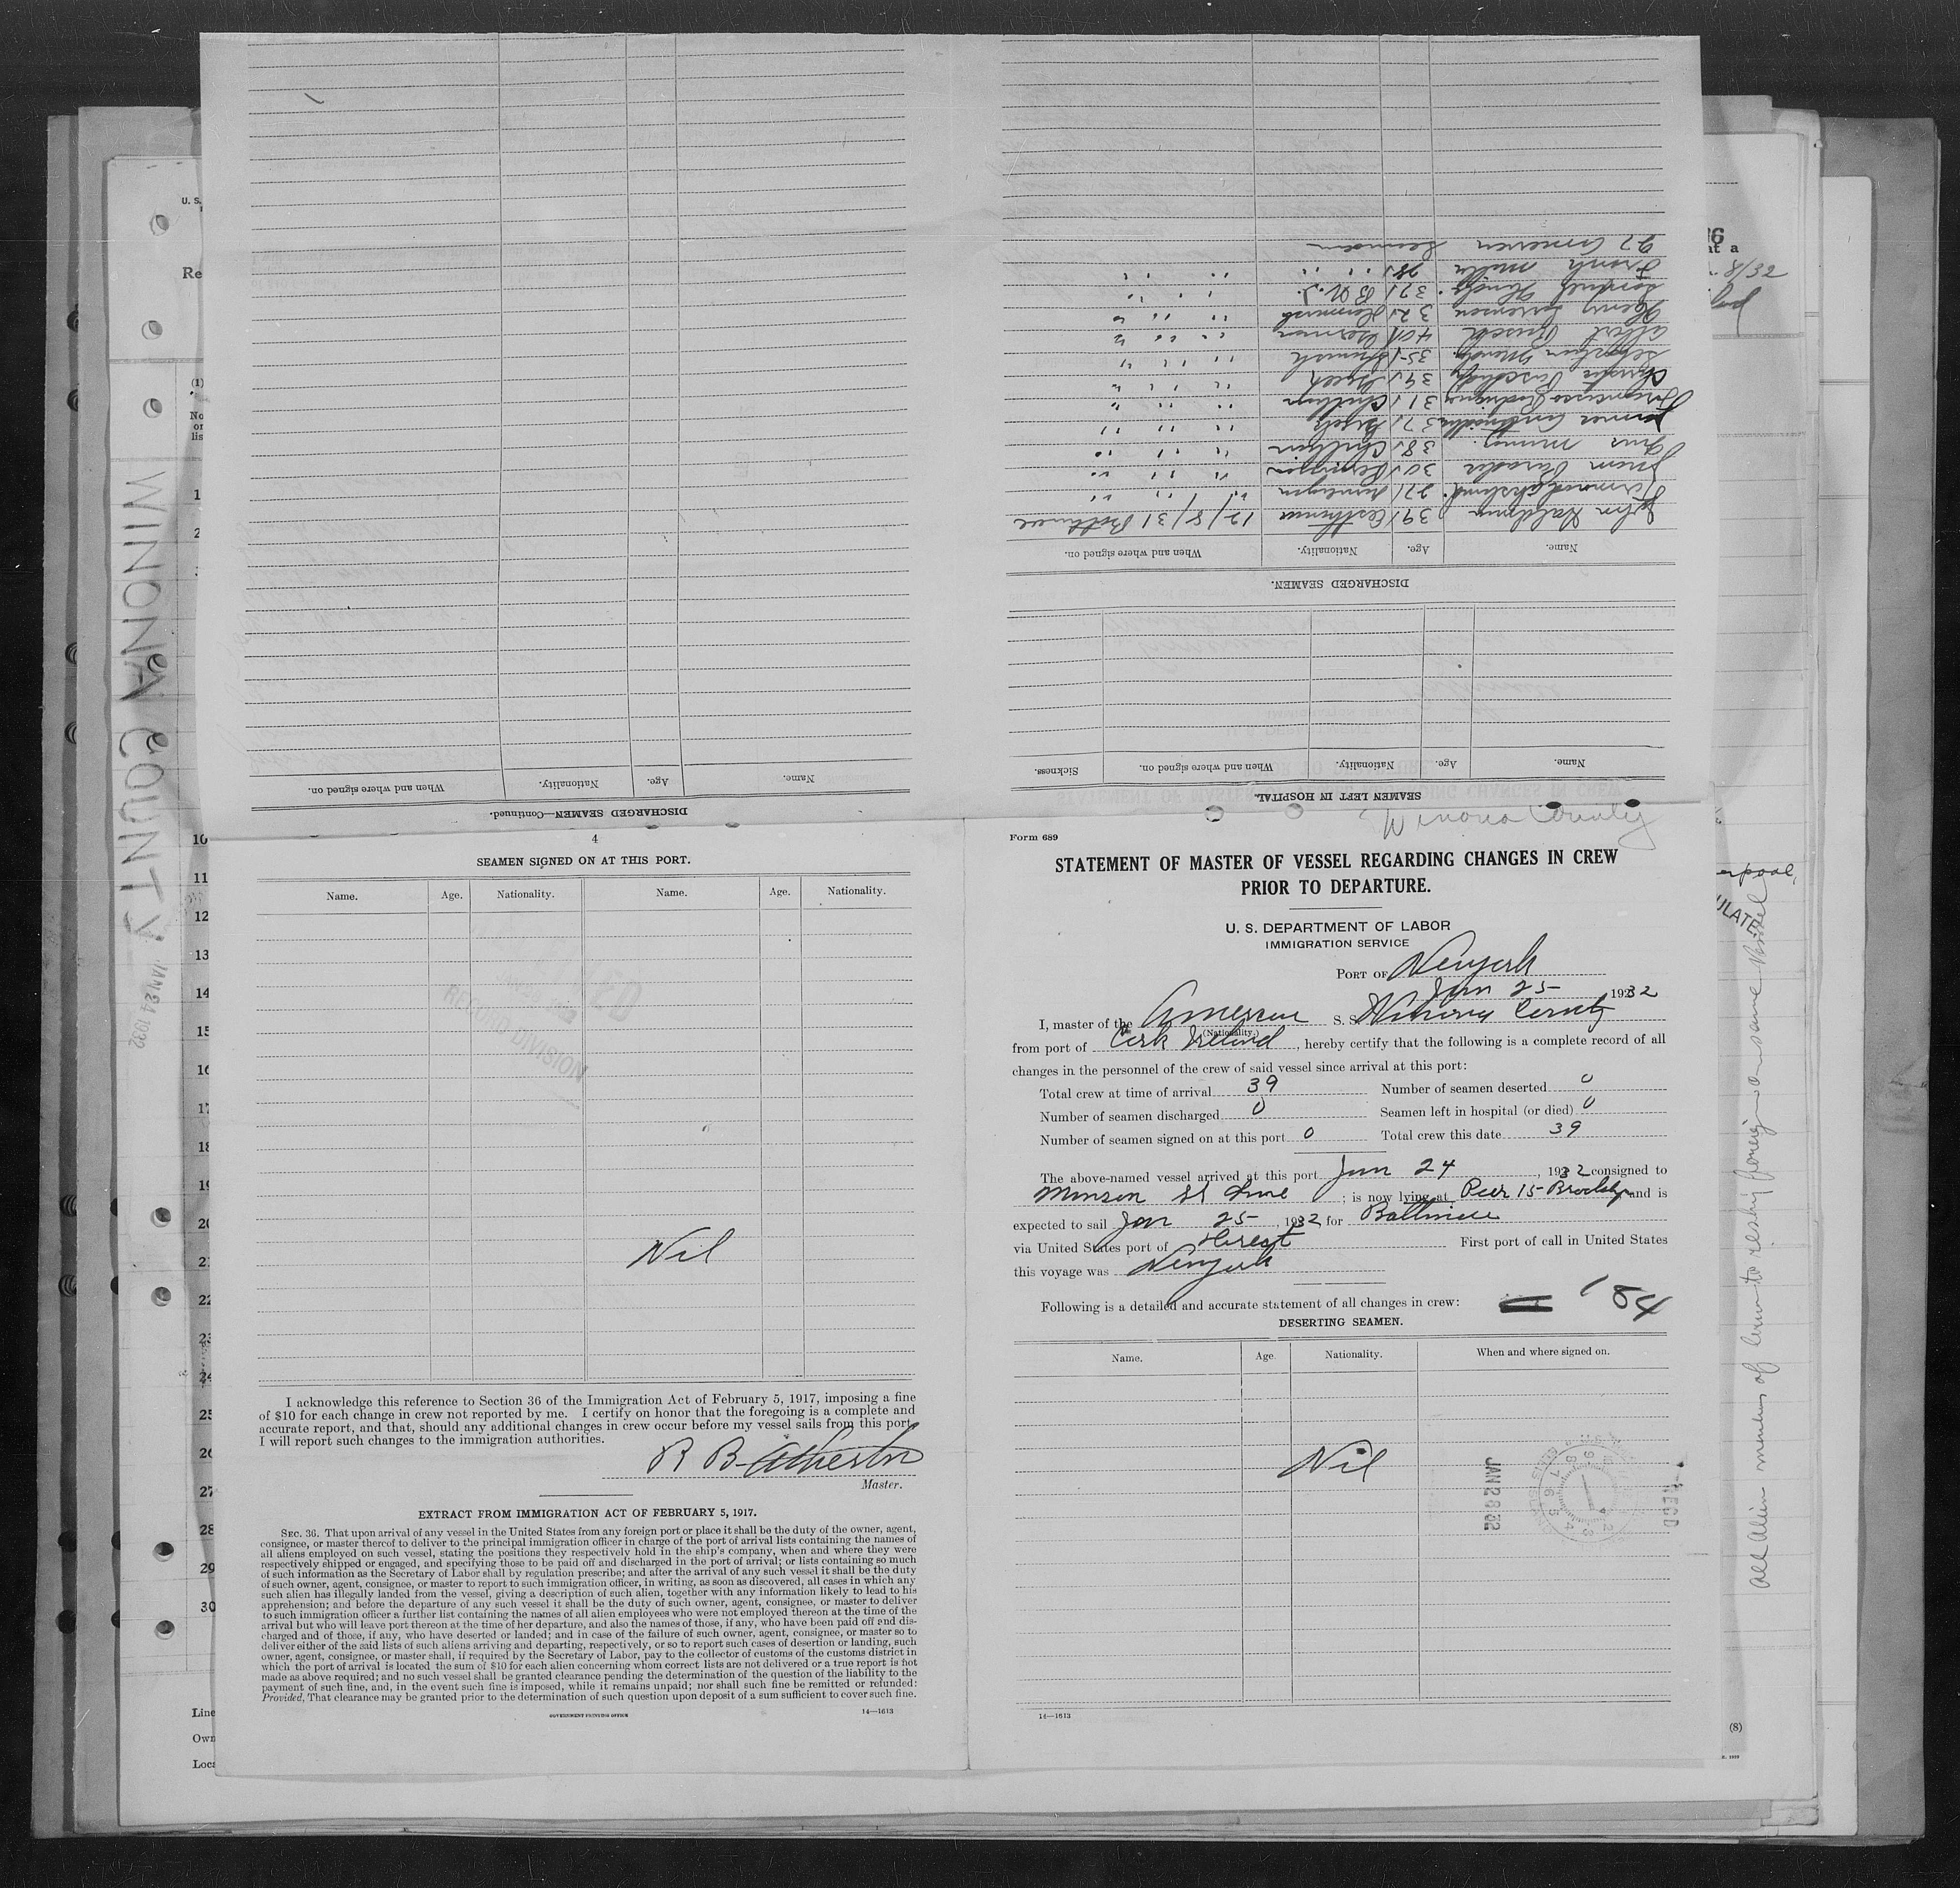 DISCHARGED SEAMEN—Continued.
Name. Age. Nationality. When and where signed on.
SEAMEN LEFT IN HOSPITAL.
Name. Age. Nationality. When and where signed on. Sickness.
DISCHARGED SEAMEN.
Name. Age. Nationality. When and where signed on.
John 39 12/8/31 Baltimore
27
Juan 30
38 Chilean
37
Francisco Rodriguez 31 Chilean
34 Greek
35 Spanish
Albert 40 German
Henry Sorensen 32 Denmark
37 B.W.I.
Frank 28
27 American Seamen
U. S.
Re
(1)
No
or
lis
1
2
WINONA COUNTY
JAN 24 1932
10
11
12
13
14
15
16
17
18
19
20
21
22
23
24
25
26
27
28
29
30
Line
Own
Loca
4
SEAMEN SIGNED ON AT THIS PORT.
Name. Age. Nationality. Name. Age. Nationality.
RECORD DIVISION
Nil
I acknowledge this reference to Section 36 of the Immigration Act of February 5, 1917, imposing a fine
of $10 for each change in crew not reported by me. I certify on honor that the foregoing is a complete and
accurate report, and that, should any additional changes in crew occur before my vessel sails from this port,
I will report such changes to the immigration authorities.
R B Atherton
Master.
EXTRACT FROM IMMIGRATION ACT OF FEBRUARY 5, 1917.
SEC. 36. That upon arrival of any vessel in the United States from any foreign port or place it shall be the duty of the owner, agent,
consignee, or master thereof to deliver to the principal immigration officer in charge of the port of arrival lists containing the names of
all aliens employed on such vessel, stating the positions they respectively hold in the ship's company, when and where they were
respectively shipped or engaged, and specifying those to be paid off and discharged in the port of arrival; or lists containing so much
of such information as the Secretary of Labor shall by regulation prescribe; and after the arrival of any such vessel it shall be the duty
of such owner, agent, consignee, or master to report to such immigration officer, in writing, as soon as discovered, all cases in which any
such alien has illegally landed from the vessel, giving a description of such alien, together with any information likely to lead to his
apprehension; and before the departure of any such vessel it shall be the duty of such owner, agent, consignee, or master to deliver
to such immigration officer a further list containing the names of all alien employees who were not employed thereon at the time of the
arrival but who will leave port thereon at the time of her departure, and also the names of those, if any, who have been paid off and dis-
charged and of those, if any, who have deserted or landed; and in case of the failure of such owner, agent, consignee, or master so to
deliver either of the said lists of such aliens arriving and departing, respectively, or so to report such cases of desertion or landing, such
owner, agent, consignee, or master shall, if required by the Secretary of Labor, pay to the collector of customs of the customs district in
which the port of arrival is located the sum of $10 for each alien concerning whom correct lists are not delivered or a true report is not
made as above required; and no such vessel shall be granted clearance pending the determination of the question of the liability to the
payment of such fine, and, in the event such fine is imposed, while it remains unpaid; nor shall such fine be remitted or refunded:
Provided, That clearance may be granted prior to the determination of such question upon deposit of a sum sufficient to cover such fine.
GOVERNMENT PRINTING OFFICE 14—1613
Winona County
Form 689
STATEMENT OF MASTER OF VESSEL REGARDING CHANGES IN CREW
PRIOR TO DEPARTURE.
U. S. DEPARTMENT OF LABOR
IMMIGRATION SERVICE
PORT OF Newyork
Jan 25 1932
I, master of the American S. S. Winona County
(Nationality.)
from port of Cork Ireland, hereby certify that the following is a complete record of all
changes in the personnel of the crew of said vessel since arrival at this port:
Total crew at time of arrival 39 Number of seamen deserted 0
Number of seamen discharged 0 Seamen left in hospital (or died) 0
Number of seamen signed on at this port 0 Total crew this date 39
The above-named vessel arrived at this port Jan 24, 1932 consigned to
Munson SS Line; is now lying at Peer 15 Brooklyn, and is
expected to sail Jan 25, 1932 for Baltimore
via United States port of Direct First port of call in United States
this voyage was Newyork
Following is a detailed and accurate statement of all changes in crew: 184
DESERTING SEAMEN.
Name. Age. Nationality. When and where signed on.
Nil
JAN 28 32
REC'D
14—1613
8/32
erpool,
ULATE
All Alien members of crew to reship foreign on same vessel
(8)